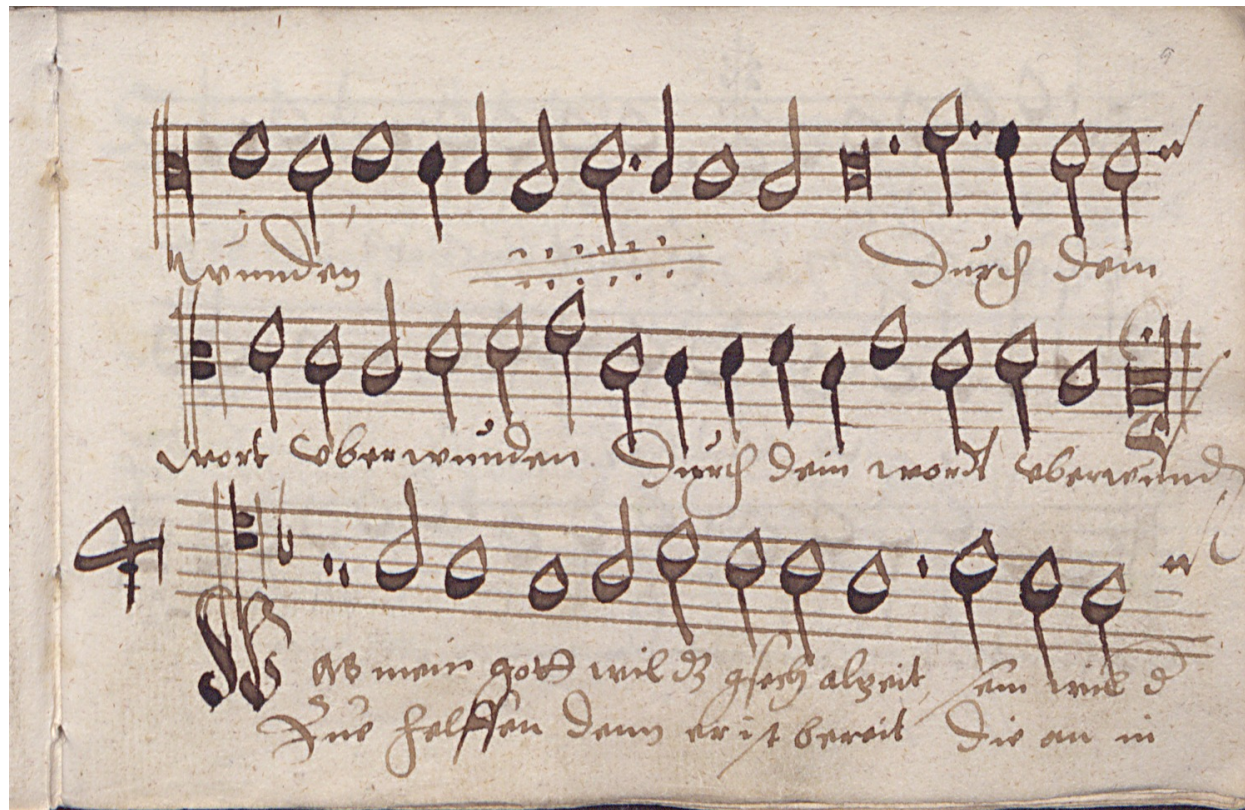 wunden Durch dein
wort vberwunden Durch dein wordt vberwund
4
Was mein gott wil dz gsech alzeit, sein wil d
Zue helffen denn er ist bereit die an in